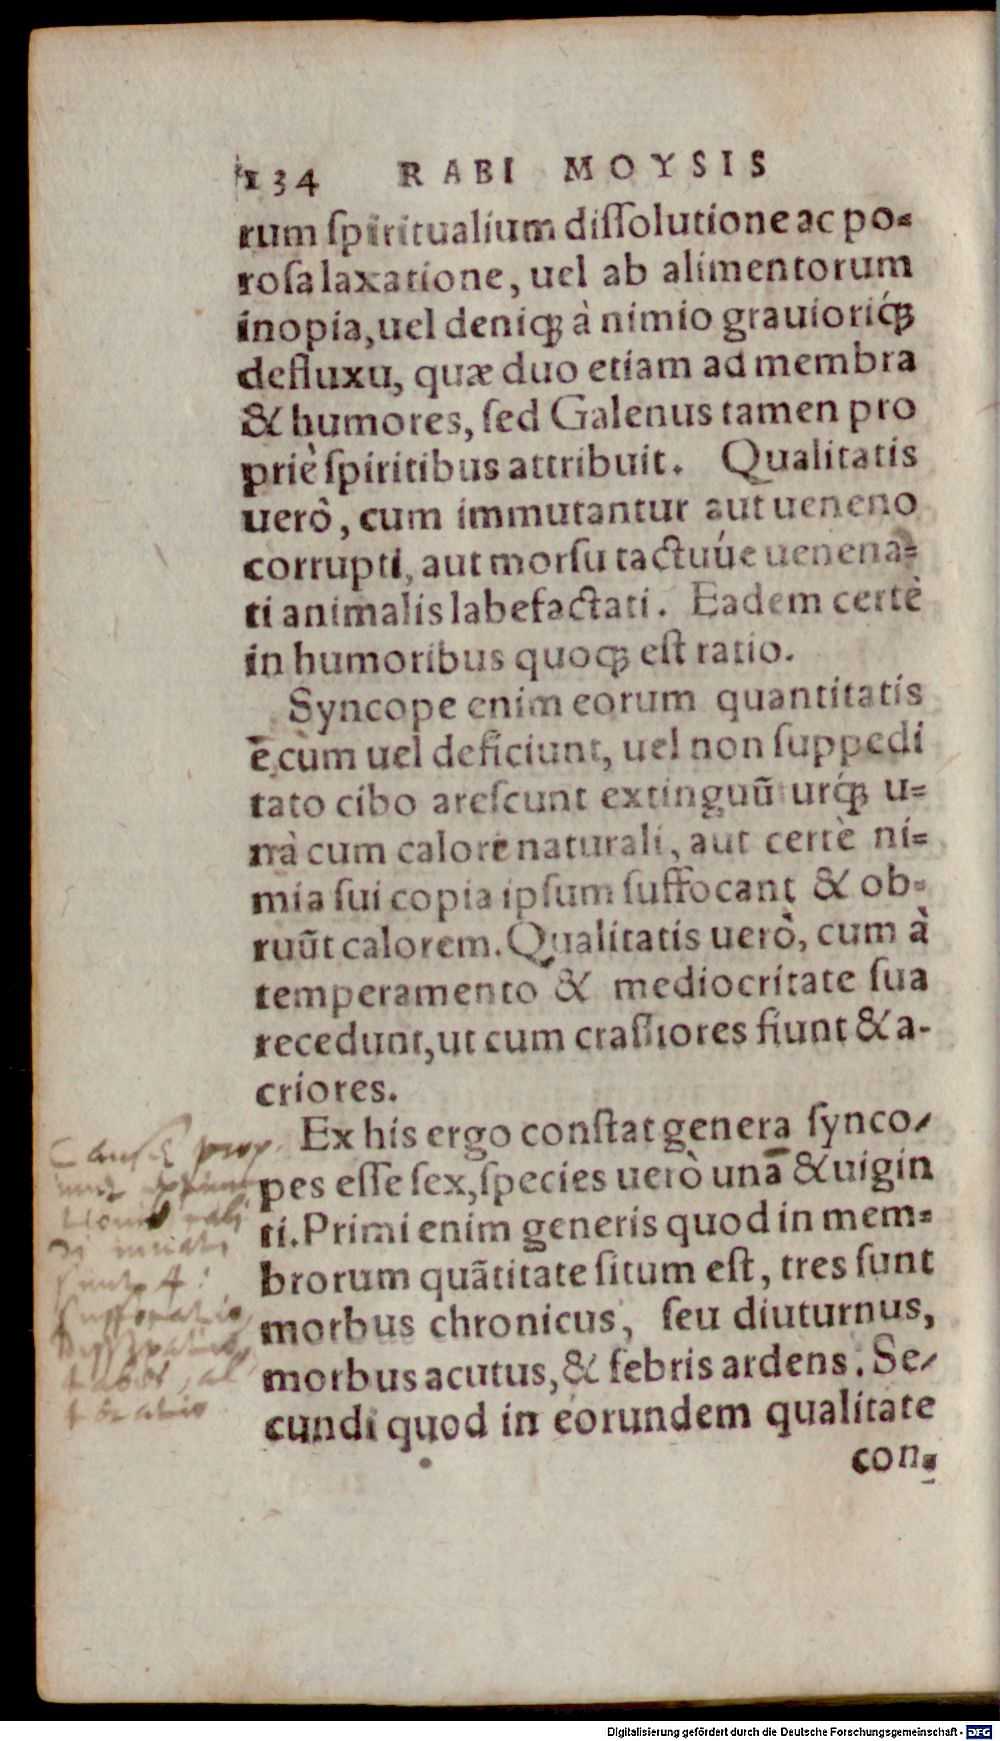 134 RABI MOYSIS
rum ſpiritualium diſſolutione ac po-
roſa laxatione, uel ab alimentorum
inopia, uel deniqꝫ à nimio grauioriq́ꝫ
defluxu, quæ duo etiam ad membra
& humores, ſed Galenus tamen pro
priè ſpiritibus attribuit. Qualitatis
uerò, cum immutantur aut ueneno
corrupti, aut morſu tactuúe uenena-
ti animalis labefactati. Eadem certè
in humoribus quoqꝫ eſt ratio.
Syncope enim eorum quantitatis
ē cùm uel deficiunt, uel non ſuppedi
tato cibo areſcunt extinguũturq́ꝫ u-
nà cum calore naturali, aut certè ni-
mia ſui copia ipſum ſuffocant & ob-
ruũt calorem. Qualitatis uerò, cum à
temperamento & mediocritate ſua
recedunt, ut cum craſſiores fiunt & a-
criores.
Ex his ergo conſtat genera ſynco-
pes eſſe ſex, ſpecies uerò unā & uigin
ti. Primi enim generis quod in mem-
brorum quãtitate ſitum eſt, tres ſunt
morbus chronicus, ſeu diuturnus,
morbus acutus, & febris ardens. Se-
cundi quod in eorundem qualitate
con-
Cauſæ
ſunt 4:
ſuffocatio
Diſſipatio,
tabes, al
teratio
Digitalisierung gefördert durch die Deutsche Forschungsgemeinschaft - DFG